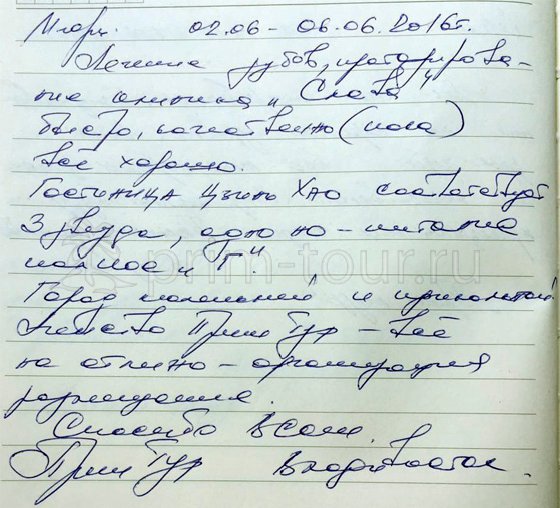 Игорь. 02.06 - 06.06.2016г.
Лечение зубов, протезирова-
ние клиника "Слава"
быстро, качественно (пока)
всё хорошо.
Гостиница Цзинь Хао соответствует
3 звезда, одно но - питание
полное "Г".
Город маленький и прикольный
Агентство Прим Тур - всё
на отлично - организация
размещения.
Спасибо всем.
Прим Тур Владивосток.
prim-tour.ru